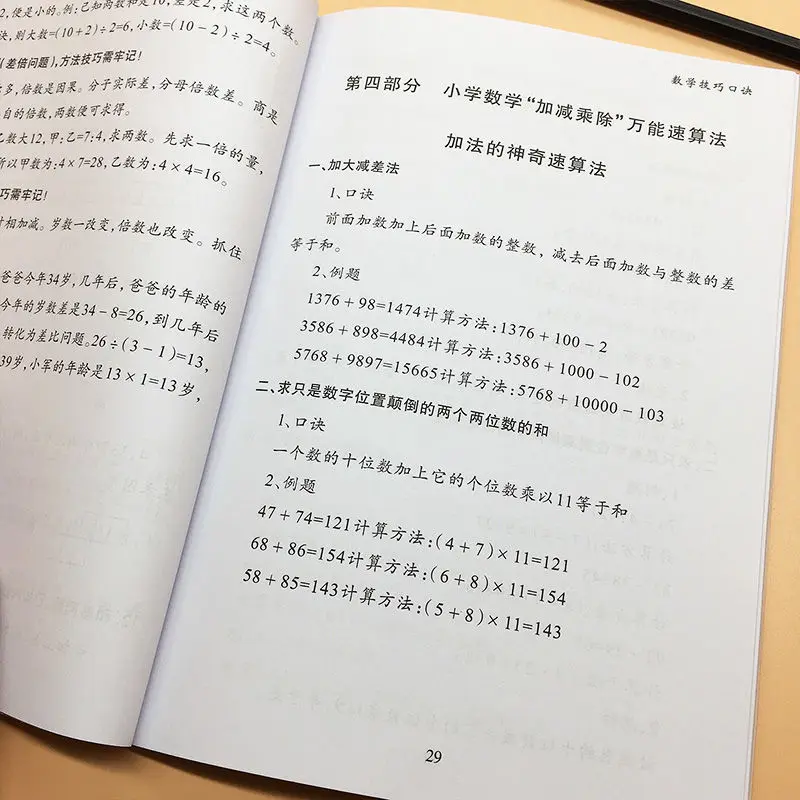 2,便是小的。例:已知两数和是10,差是2,求这两个数。
诀,则大数=(10+2)÷2=6,小数=(10-2)÷2=4。
(差倍问题),方法技巧需牢记!
多,倍数是因果。分子实际差,分母倍数差。商是
自的倍数,两数便可求得。
乙数大12,甲:乙=7:4,求两数。先求一倍的量,
所以甲数为:4×7=28,乙数为:4×4=16。
巧需牢记!
相加减。岁数一改变,倍数也改变。抓住
爸爸今年34岁,几年后,爸爸的年龄的
今年的岁数差是34-8=26,到几年后
转化为差比问题。26÷(3-1)=13,
39岁,小军的年龄是13×1=13岁,
数学技巧口诀
第四部分 小学数学“加减乘除”万能速算法
加法的神奇速算法
一、加大减差法
1、口诀
前面加数加上后面加数的整数,减去后面加数与整数的差
等于和。
2、例题
1376+98=1474计算方法:1376+100-2
3586+898=4484计算方法:3586+1000-102
5768+9897=15665计算方法:5768+10000-103
二、求只是数字位置颠倒的两个两位数的和
1、口诀
一个数的十位数加上它的个位数乘以11等于和
2、例题
47+74=121计算方法:(4+7)×11=121
68+86=154计算方法:(6+8)×11=154
58+85=143计算方法:(5+8)×11=143
29